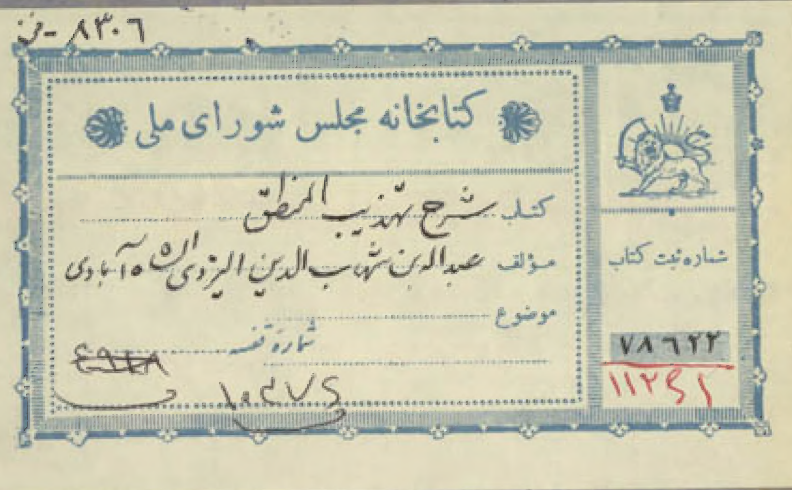 ۸۳۰۶ - فن
کتابخانه مجلس شورای ملی
کتاب شرح تهذیب المنطق
مؤلف عبدالله بن شهاب الدین الیزدی الشاه آبادی
موضوع
شماره قفسه
شماره ثبت کتاب
۷۸۶۲۲